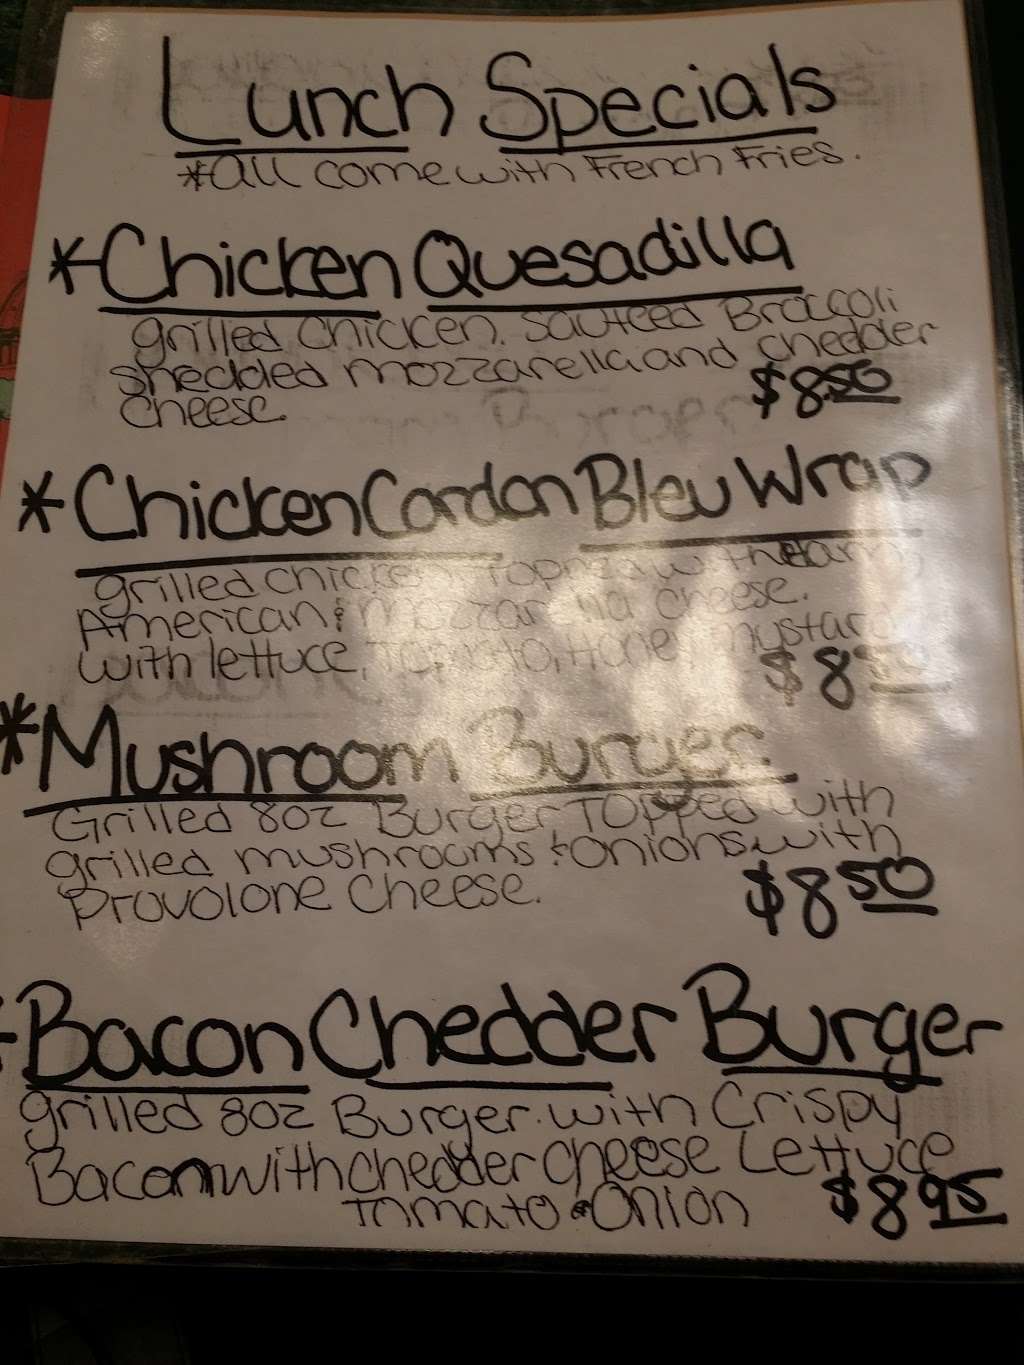 Lunch Specials
*All come with French Fries.
*Chicken Quesadilla
grilled chicken. sauteed Broccoli
shedded mozzarella and chedder
cheese. $8.50
*Chicken Cordon Bleu Wrap
grilled chicken with Ham,
American & mozzarella cheese.
with lettuce, Tomato, Honey mustard
$8
*Mushroom Burger.
Grilled 8oz Burger Topped with
grilled mushrooms & onions with
Provolone Cheese. $8 50
*Bacon Chedder Burger
grilled 8oz Burger. with Crispy
Bacon with chedder cheese Lettuce
tomato & Onion $8 95